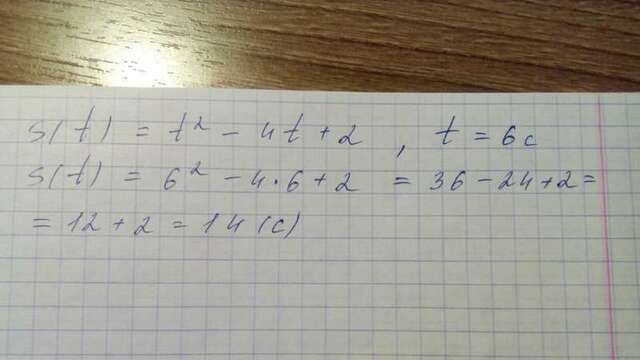 s(t) = t² - 4t + 2 , t = 6с
s(t) = 6² - 4·6 + 2 = 36 - 24 + 2 =
= 12 + 2 = 14 (с)